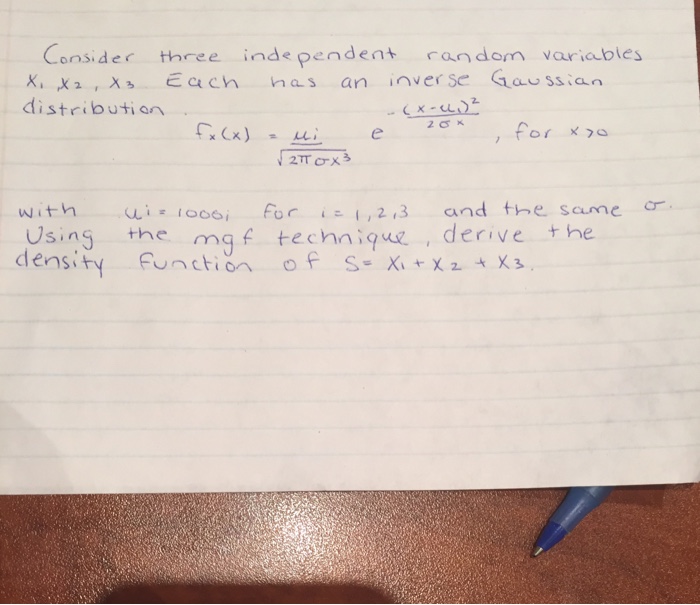 Consider three independent random variables
X₁, X₂, X₃ Each has an inverse Gaussian
distribution
fₓ(x) = μi / √2πσx³ e^-(x-μi)²/2σx , for x>0
with μi = 1000i for i = 1,2,3 and the same σ.
Using the mgf technique, derive the
density function of S= X₁ + X₂ + X₃.